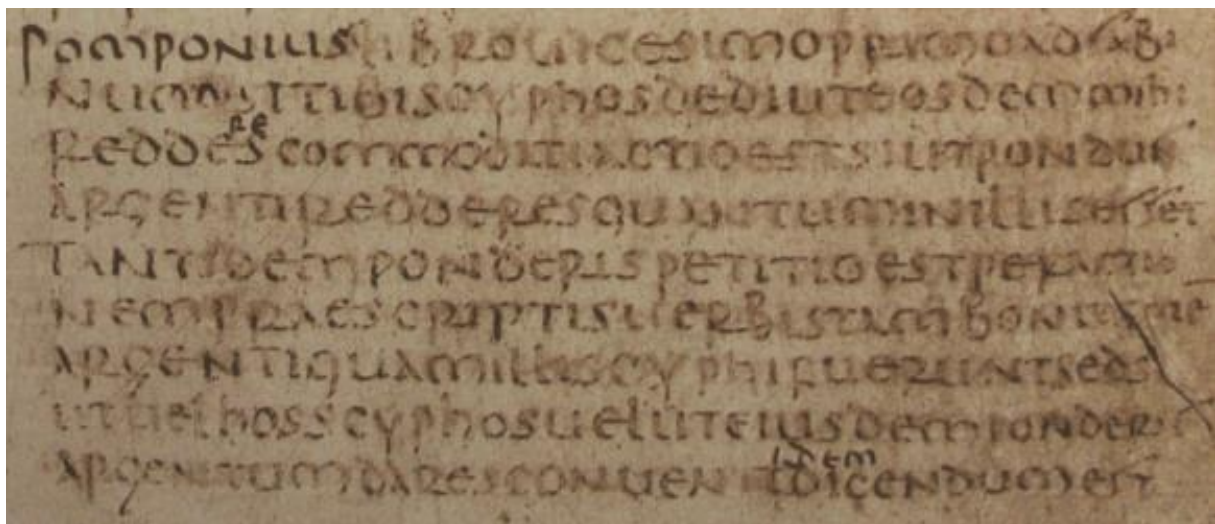 pomponius libro uicesimo primo ad sabi
num si tibi scyphos dedi ut eosdem mihi
redderes commodati actio est si ut pondus
argenti redderes quantum in illis esset
tantidem ponderis petitio est per actio
nem praescriptis uerbis tam boni tamē
argenti quam illi scyphi fuerunt sed si
ut uel hos scyphos uel ut eiusdem ponderis
argentum dares conuenit idem dicendum est